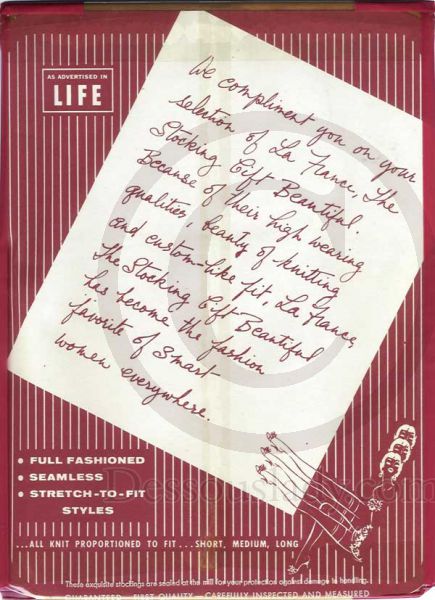 AS ADVERTISED IN
LIFE
We compliment you on your
selection of La France, The
Stocking Gift Beautiful.
Because of their high wearing
qualities, beauty of knitting
and custom-like fit, La France,
The Stocking Gift Beautiful
has become the fashion
favorite of smart
women everywhere.
• FULL FASHIONED
• SEAMLESS
• STRETCH-TO-FIT
STYLES
...ALL KNIT PROPORTIONED TO FIT...SHORT, MEDIUM, LONG
These exquisite stockings are sealed at the mill for your protection against damage in handling.
GUARANTEED FIRST QUALITY - CAREFULLY INSPECTED AND MEASURED
©
Dessouslady.com